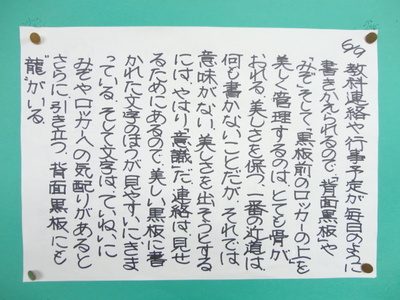 教科連絡や行事予定が毎日のように
書きかえられるので、「背面黒板」や
「みぞ」そして、黒板前のロッカーの上を
美しく管理するのは、とても骨が
おれる。美しさを保つ、一番の近道は、
何も書かないことだが、それでは
意味がない。美しさを出そうとする
には、やはり「意識」だ。連絡は、見せ
るためにあるので、美しい黒板に書
かれた文字のほうが見やすいにきま
っている。そして文字は、ていねいに。
みぞやロッカーへの気配りがあると
さらに、引き立つ。背面黒板にも
“龍”がいる。